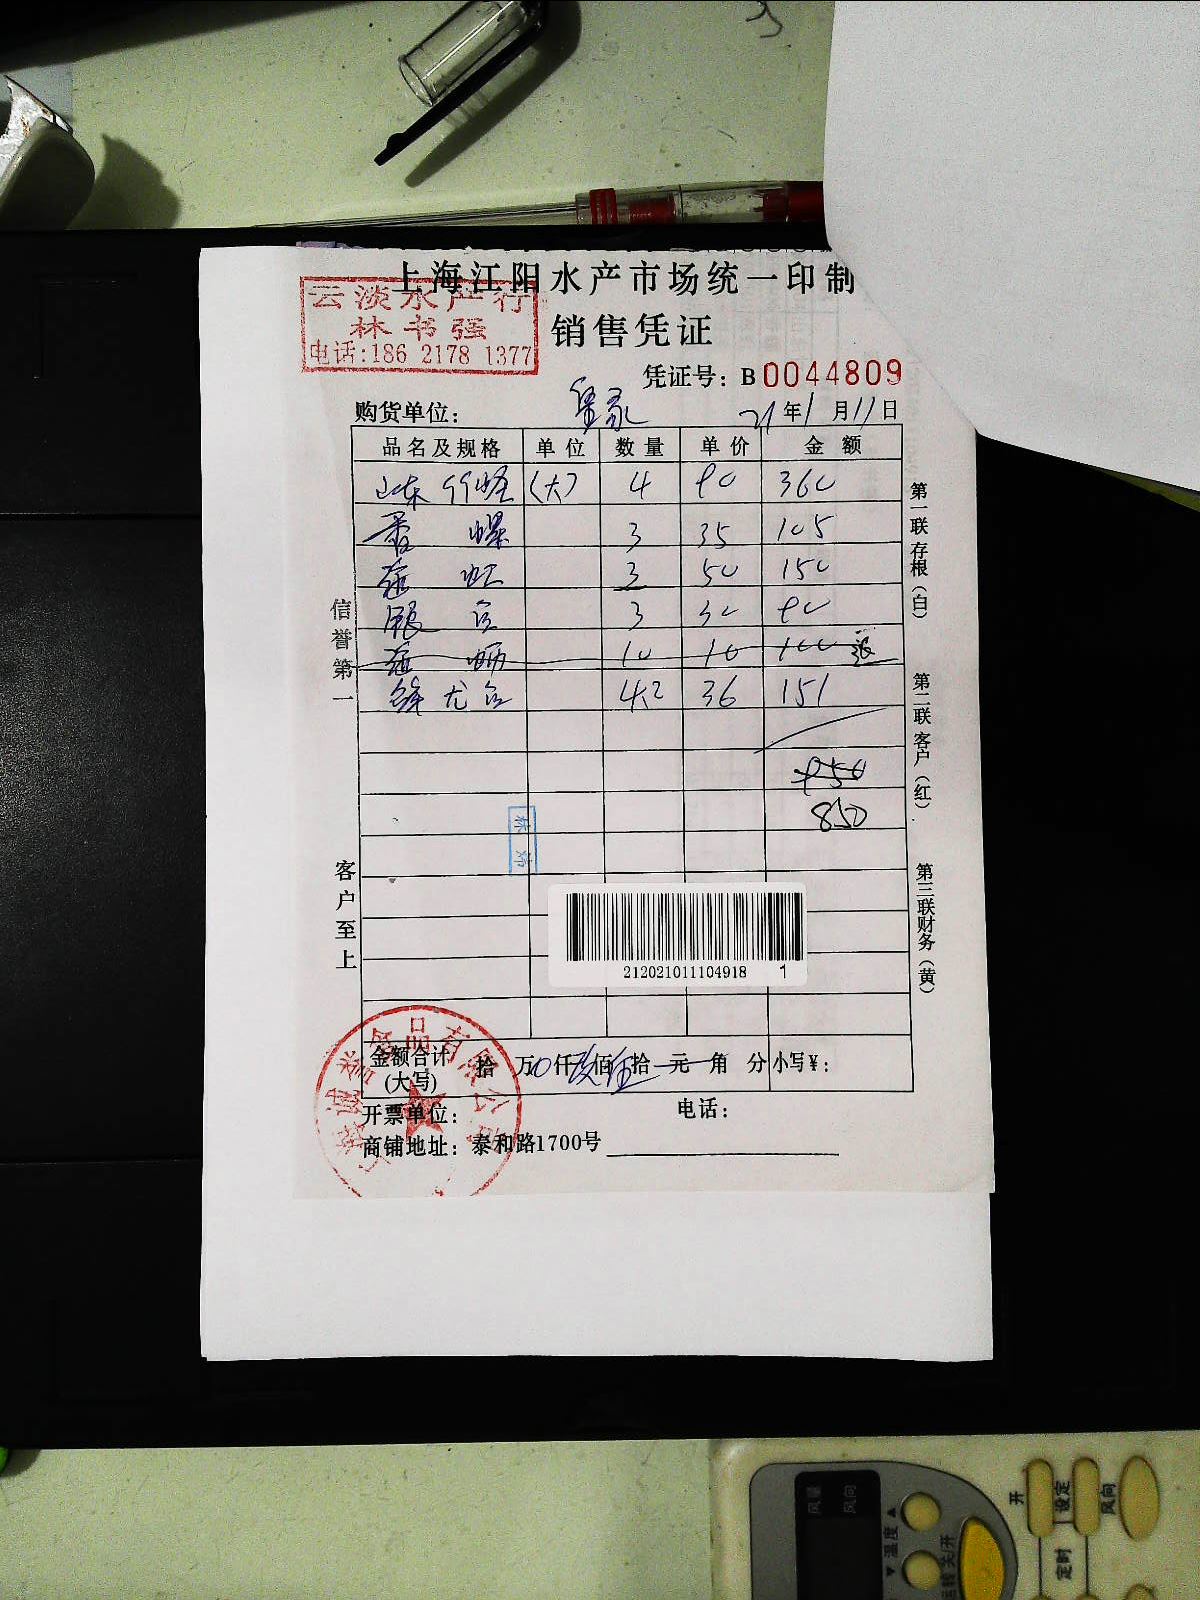 上海江阳水产市场统一印制
云淡水产行
林书强
电话:186 2178 1377
销售凭证
凭证号: B 0044809
购货单位:
21年1月11日
品名及规格 单位 数量 单价 金额
山东竹蛏 (大) 4 90 360
香螺 3 35 105
3 50 150
3 30 90
10 10 100 退
4.2 36 151
950
850
信誉第一
客户至上
第一联存根(白)
第二联客户(红)
第三联财务(黄)
212021011104918 1
金额合计(大写) 拾 万 仟 佰 拾 元 角 分 小写¥:
食品有限公司
开票单位: 电话:
商铺地址: 泰和路1700号
风量 风向
温度
运转 关/开
开 设定 风向
定时